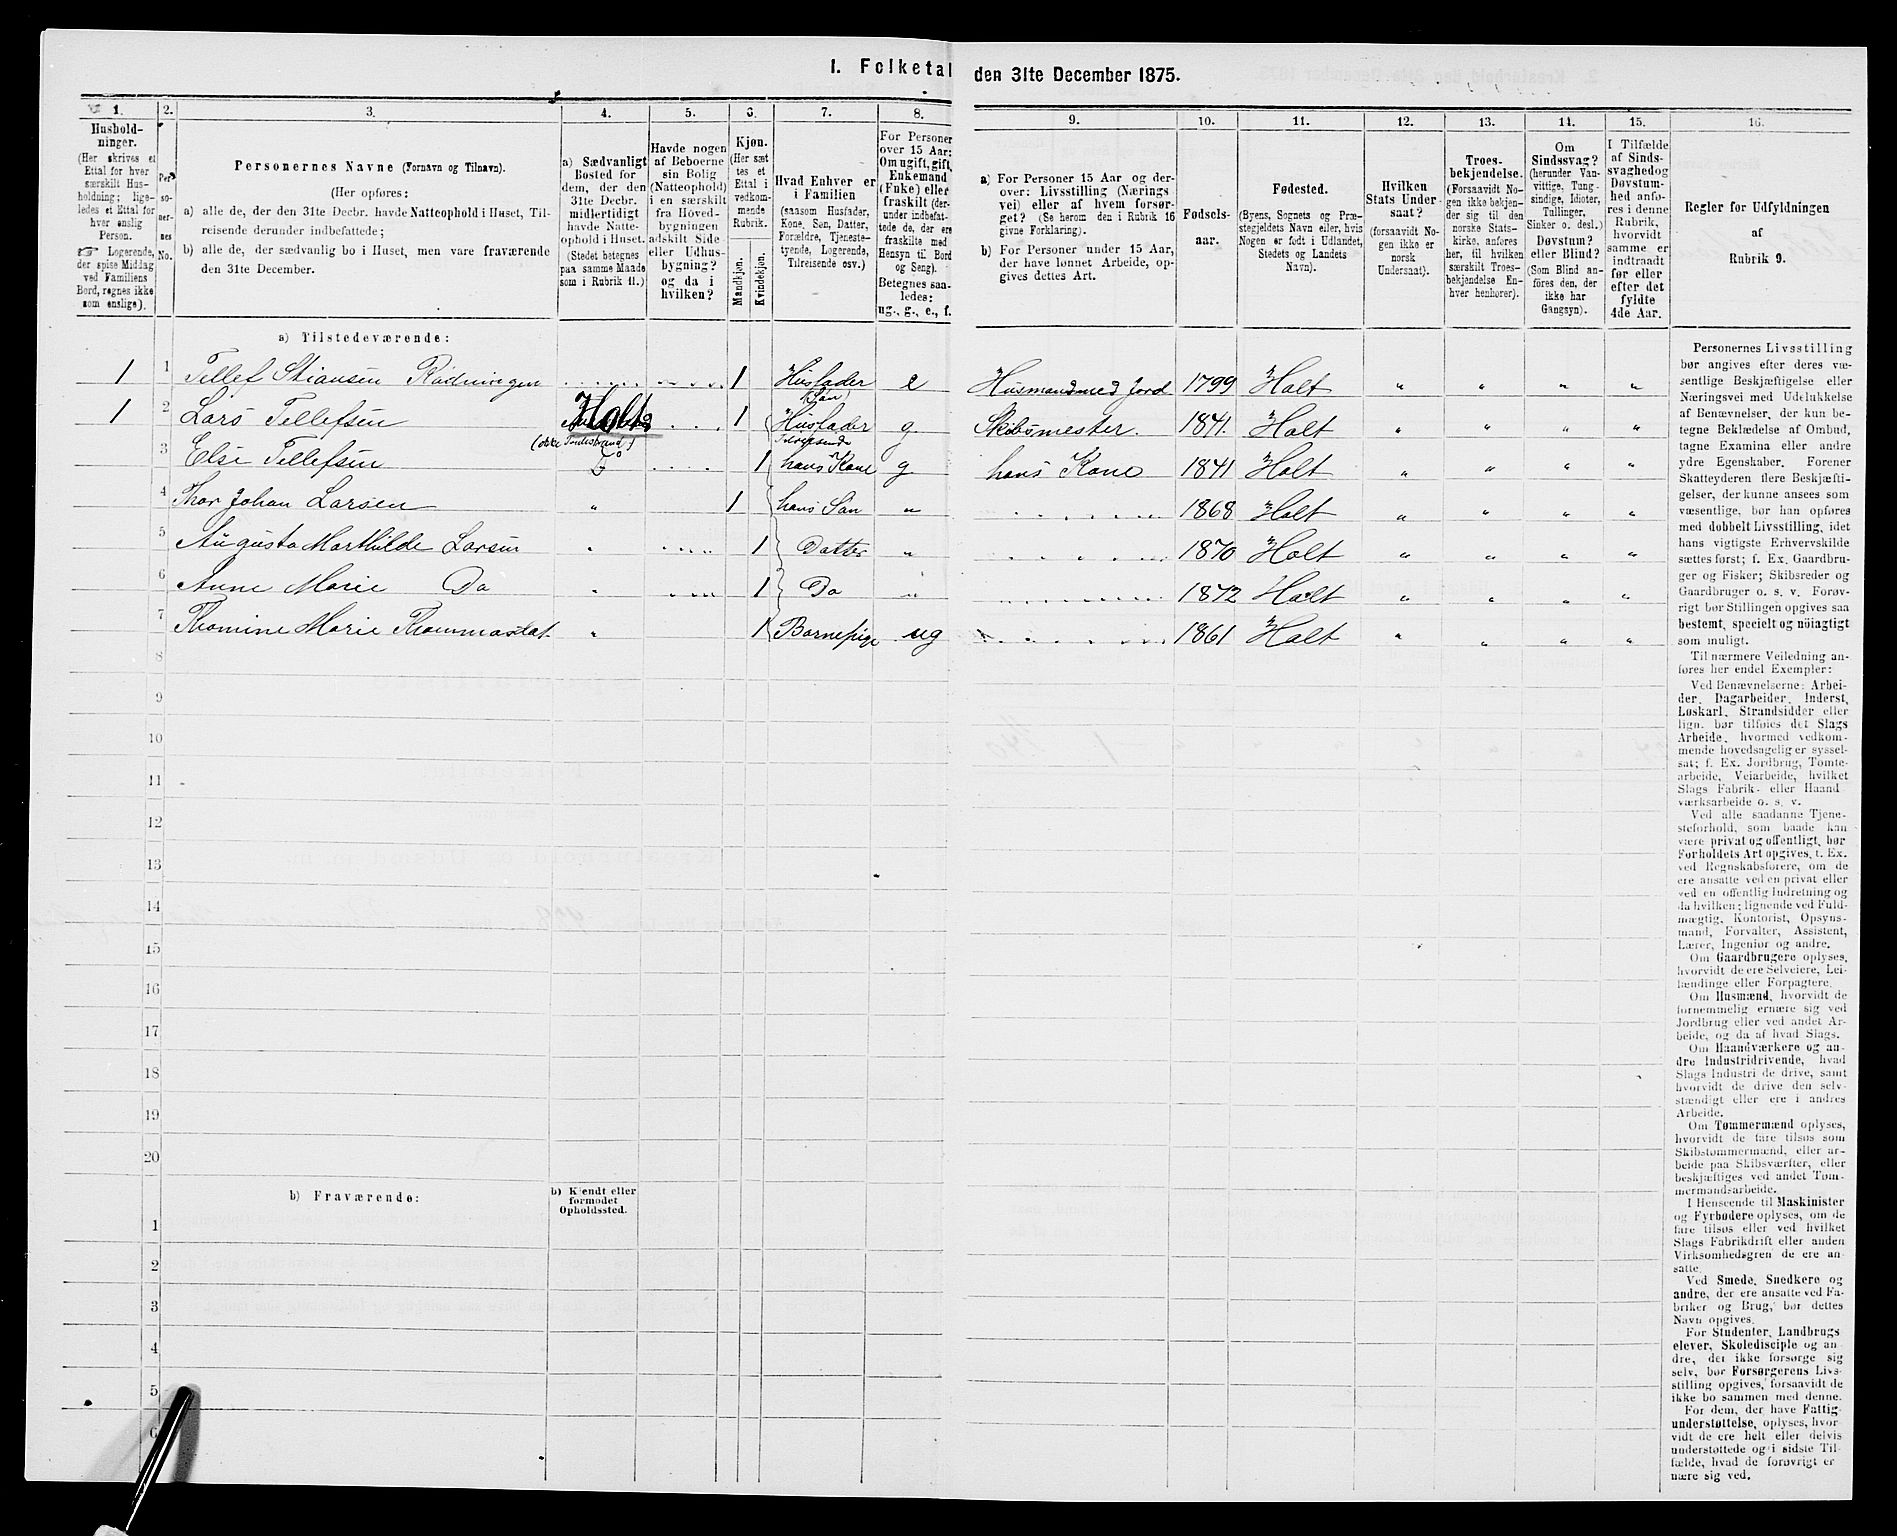 1. Folketal den 31te December 1875.
1. 2. 3. 4. 5. 6. 7. 8. 9. 10. 11. 12. 13. 14. 15. 16.
Hushold-
ninger.
(Her skrives et
Ettal for hver
særskilt Hus-
holdning; lige-
ledes et Ettal for
hver enslig
Person.
☞ Logerende,
der spise Middag
ved Familiens
Bord, regnes ikke
som enslige).
Per-
so-
ner-
nes
No.
Personernes Navne (Fornavn og Tilnavn).
(Her opføres:
a) alle de, der den 31te Decbr. havde Natteophold i Huset, Til-
reisende derunder indbefattede;
b) alle de, der sædvanlig bo i Huset, men vare fraværende
den 31te December.
a) Sædvanligt
Bosted for
dem, der den
31te Decbr.
midlertidigt
havde Natte-
ophold i Huset.
(Stedet betegnes
paa samme Maade
som i Rubrik 11.)
Havde nogen
af Beboerne
sin Bolig
(Natteophold)
i en særskilt
fra Hoved-
bygningen
adskilt Side-
eller Udhus-
bygning?
og da i
hvilken?
Kjøn.
(Her sæt-
tes et
Ettal i
vedkom-
mende
Rubrik.
Mandkjøn.
Kvindekjøn.
Hvad Enhver er
i Familien
(saasom Husfader,
Kone, Søn, Datter,
Forældre, Tjeneste-
tyende, Logerende,
Tilreisende osv.)
For Personer
over 15 Aar:
Om ugift, gift,
Enkemand
(Enke) eller
fraskilt (der-
under indbefat-
tede de, der ere
fraskilte med
Hensyn til Bord
og Seng).
Betegnes saa-
ledes:
ug., g., e., f.
a) For Personer 15 Aar og der-
over: Livsstilling (Nærings-
vei) eller af hvem forsør-
get? (Se herom den i Rubrik 16
givne Forklaring).
b) For Personer under 15 Aar,
der have lønnet Arbeide, op-
gives dettes Art.
Fødsels-
aar.
Fødested.
(Byens, Sognets og Præ-
stegjeldets Navn eller, hvis
Nogen er født i Udlandet,
Stedets og Landets
Navn).
Hvilken
Stats Under-
saat?
(forsaavidt No-
gen ikke er
norsk
Undersaat).
Troes-
bekjendelse.
(Forsaavidt No-
gen ikke bekjen-
der sig til den
norske Stats-
kirke, anføres
her, til hvilken
særskilt Troes-
bekjendelse En-
hver henhører).
Om
Sindssvag?
(herunder Van-
vittige, Tung-
sindige, Idioter,
Tullinger,
Sinker o. desl.)
Døvstum?
eller Blind?
(Som Blind an-
føres den, der
ikke har
Gangsyn).
I Tilfælde
af Sinds-
svaghed og
Døvstum-
hed anfø-
res i denne
Rubrik,
hvorvidt
samme er
indtraadt
før eller
efter det
fyldte
4de Aar.
Regler for Udfyldningen
af
Rubrik 9.
a) Tilstedeværende:
1 1 Tellef Stiansen Rødningen 1 Husfader e Husmand med Jord 1799 Holt " " " "
1 2 Lars Tellefsen Holt 1 (Søn) Husfader g. Skibsmester. 1841. Holt " " " "
3 Else Tellefsen 1 hans Kone g hans Kone 1841 Holt " " " "
4 Thor Johan Larsen " 1 hans Søn " 1868 Holt " " " "
5 Augusta Marthilde Larsen " 1 Datter " 1870 Holt " " " "
6 Anne Marie Do " 1 Do " 1872 Holt " " " "
7 Thomine Marie Thommasdat. " 1 Barnepige ug 1861 Holt " " " "
8
9
10
11
12
13
14
15
16
17
18
19
20
b) Fraværende: b) Kjendt eller
formodet
Opholdssted.
1
2
3
4
5
6
Personernes Livsstilling
bør angives efter deres væ-
sentlige Beskjæftigelse eller
Næringsvei med Udelukkelse
af Benævnelser, der kun be-
tegne Beklædelse af Ombud,
tagne Examina eller andre
ydre Egenskaber. Forener
Skatteyderen flere Beskjæfti-
gelser, der kunne ansees som
væsentlige, bør han opføres
med dobbelt Livsstilling, idet
hans vigtigste Erhvervskilde
sættes først; f. Ex. Gaardbru-
ger og Fisker; Skibsreder og
Gaardbruger o. s. v. Forøv-
rigt bør Stillingen opgives saa
bestemt, specielt og nöiagtigt
som muligt.
Til nærmere Veiledning an-
føres her endel Exempler:
Ved Benævnelserne: Arbei-
der, Dagarbeider, Inderst,
Løskarl, Strandsidder eller
lign. bør tilføies det Slags
Arbeide, hvormed vedkom-
mende hovedsagelig er syssel-
sat; f. Ex. Jordbrug, Tomte-
arbeide, Veiarbeide, hvilket
Slags Fabrik- eller Haand-
værksarbeide o. s. v.
Ved alle saadanne Tjene-
steforhold, som baade kan
være privat og offentligt, bør
Forholdets Art opgives, t. Ex.
ved Regnskabsførere, om de
ere ansatte ved en privat eller
ved en offentlig Indretning og
da hvilken; lignende ved Fuld-
mægtig, Kontorist, Opsyns-
mand, Forvalter, Assistent,
Lærer, Ingeniør og andre.
Om Gaardbrugere oplyses,
hvorvidt de ere Selveiere, Lei-
lændinge eller Forpagtere.
Om Husmænd, hvorvidt de
fornemmelig ernære sig ved
Jordbrug eller ved andet Ar-
beide, og da af hvad Slags.
Om Haandværkere og an-
dre Industridrivende, hvad
Slags Industri de drive, samt
hvorvidt de drive den selv-
stændigt eller ere i andres
Arbeide.
Om Tømmermænd oplyses,
hvorvidt de fare tilsøs som
Skibstømmermænd, eller ar-
beide paa Skibsværfter, eller
beskjæftiges ved andet Tøm-
mermandsarbeide.
I Henseende til Maskinister
og Fyrbødere oplyses, om de
fare tilsøs eller ved hvilket
Slags Fabrikdrift eller anden
Virksomhedsgren de ere an-
satte.
Ved Smede, Snedkere og
andre, der ere ansatte ved Fa-
briker og Brug, bør dettes
Navn opgives.
For Studenter, Landbrugs-
elever, Skoledisciple og an-
dre, der ikke forsørge sig
selv, bør Forsørgerens Livs-
stilling opgives, forsaavidt de
ikke bo sammen med denne.
For dem, der have Fattig-
understøttelse, oplyses, hvor-
vidt de ere helt eller delvis
understøttede og i sidste Til-
fælde, hvad de forøvrigt er-
nære sig ved.